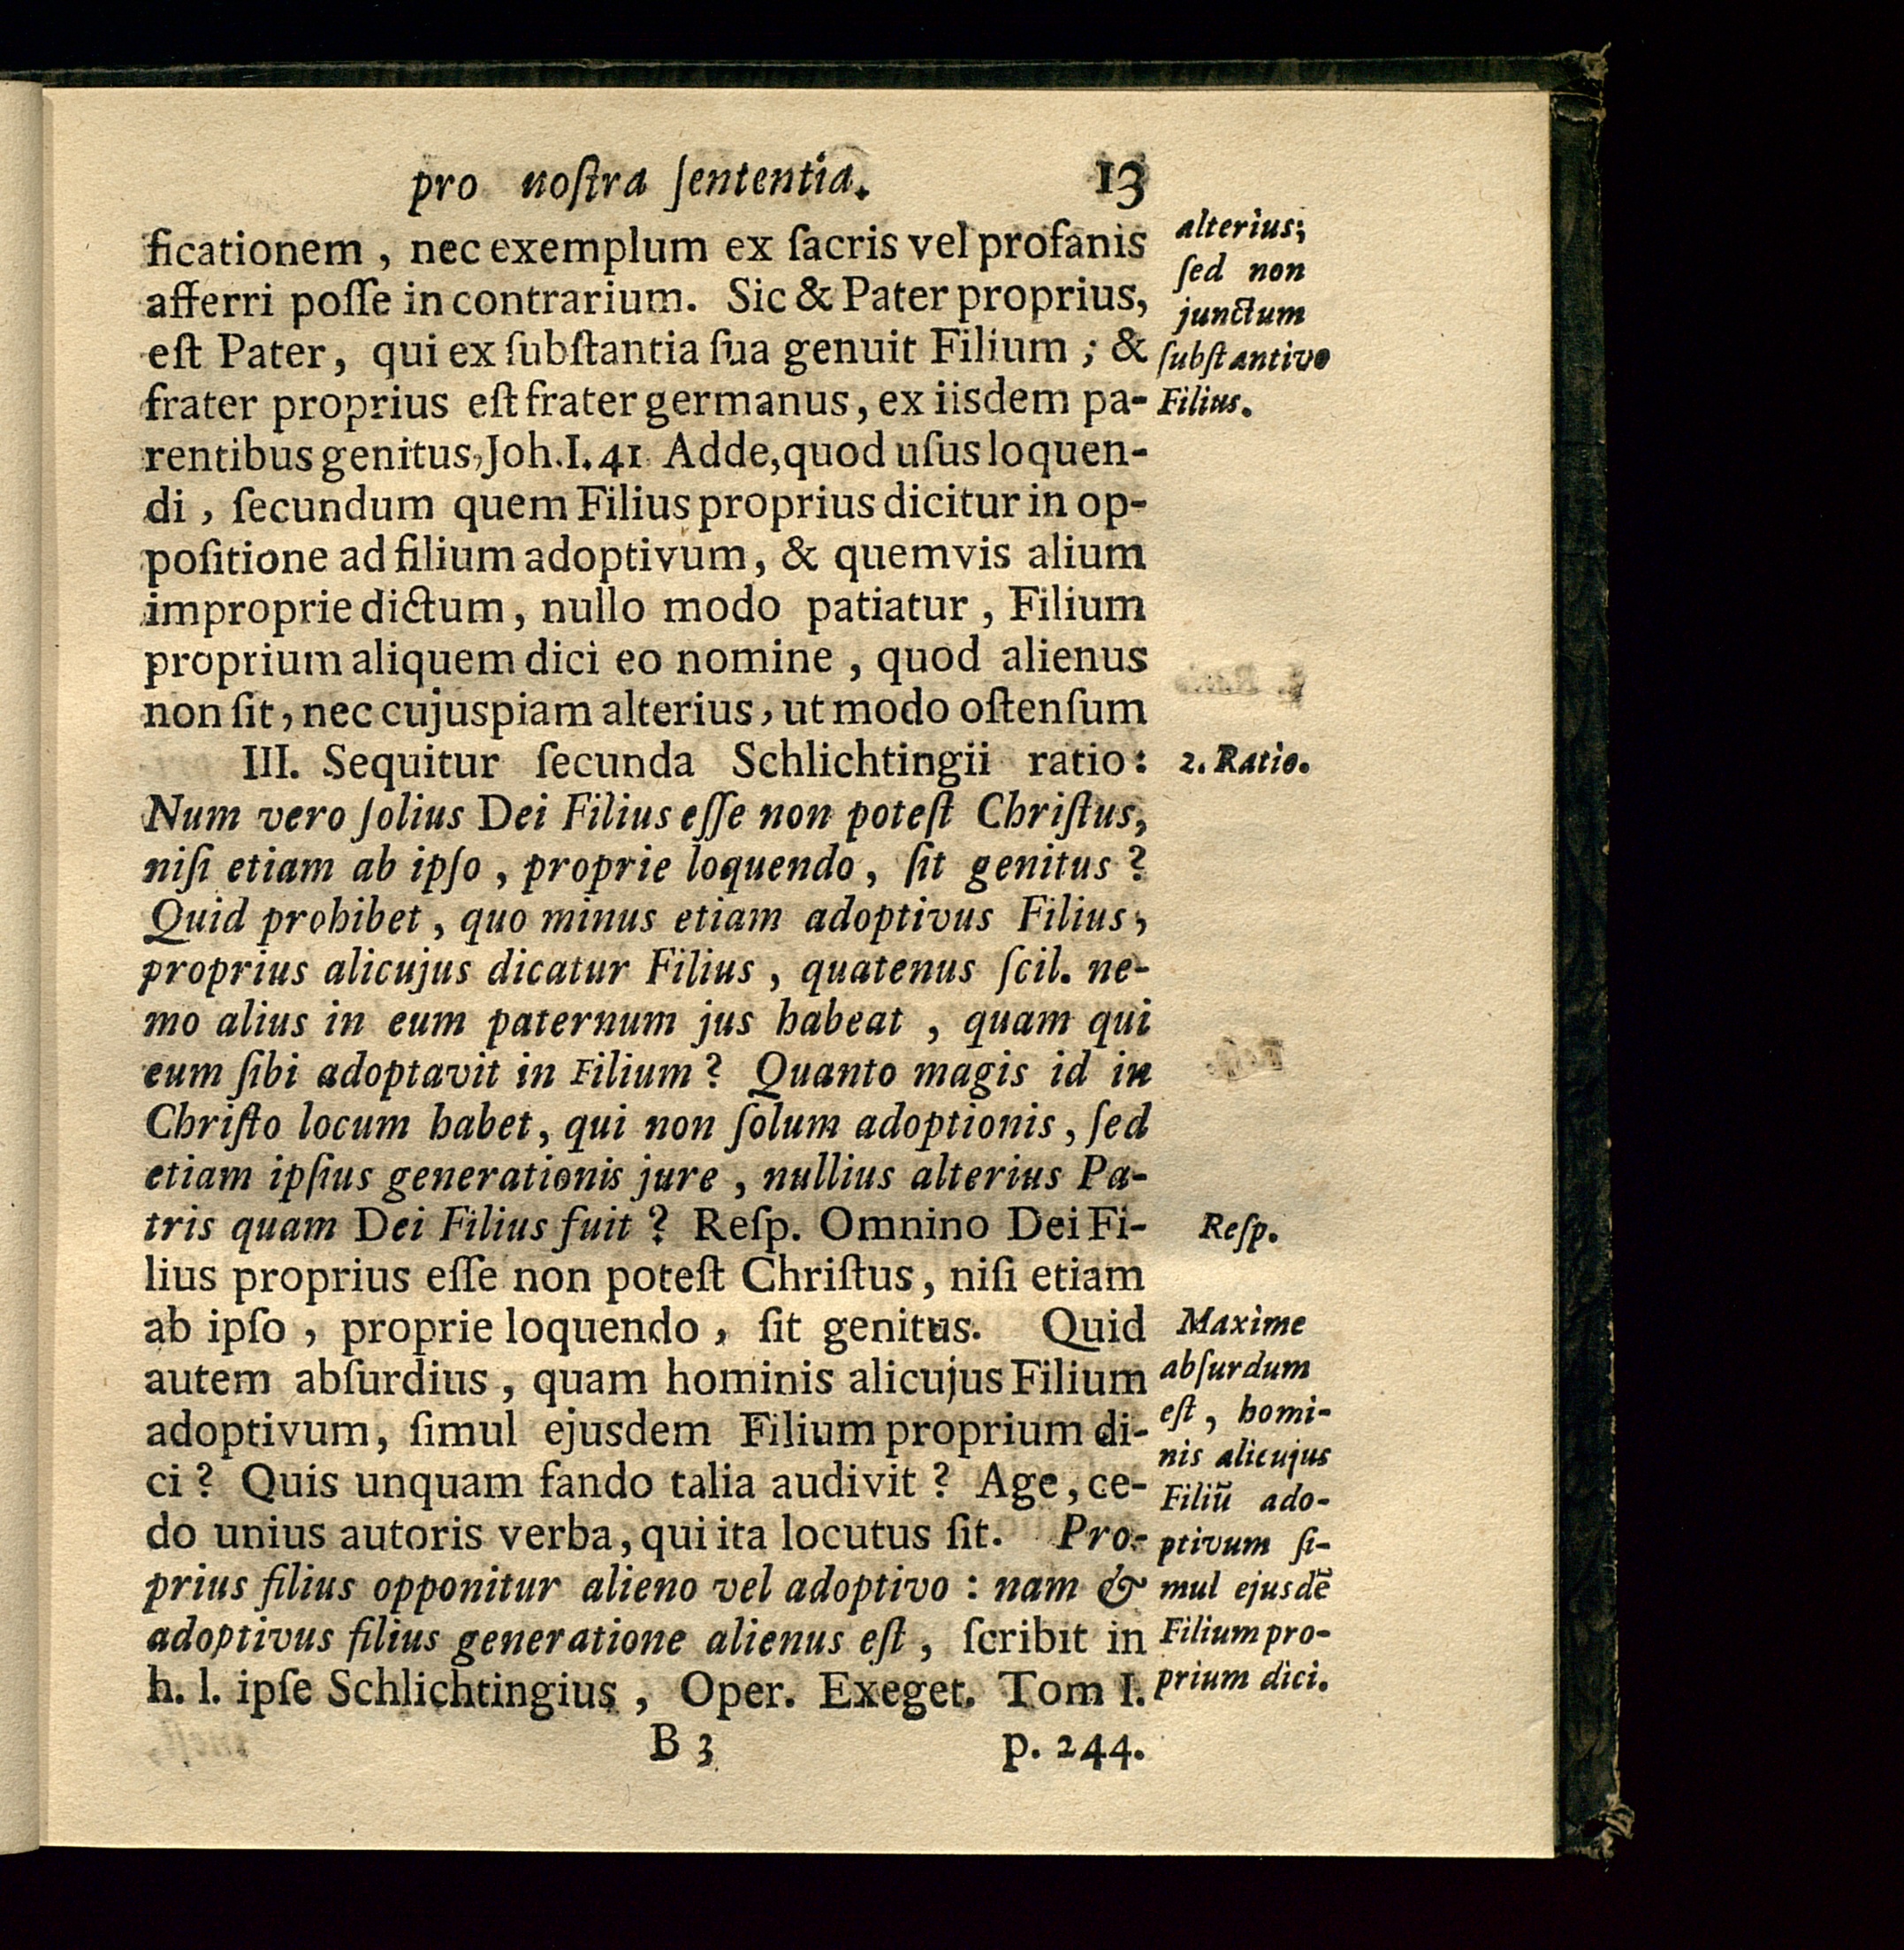 pro noſtra ſententia. 13
ficationem, nec exemplum ex ſacris vel profanis
afferri poſſe in contrarium. Sic & Pater proprius,
eſt Pater, qui ex ſubſtantia ſua genuit Filium; &
frater proprius eſt frater germanus, ex iisdem pa-
rentibus genitus, Joh. I. 41 Adde, quod uſus loquen-
di, ſecundum quem Filius proprius dicitur in op-
poſitione ad filium adoptivum, & quemvis alium
improprie dictum, nullo modo patiatur, Filium
proprium aliquem dici eo nomine, quod alienus
non ſit, nec cujuspiam alterius, ut modo oſtenſum
III. Sequitur ſecunda Schlichtingii ratio:
Num vero ſolius Dei Filius eſſe non poteſt Chriſtus,
niſi etiam ab ipſo, proprie loquendo, ſit genitus?
Quid prohibet, quo minus etiam adoptivus Filius,
proprius alicujus dicatur Filius, quatenus ſcil. ne-
mo alius in eum paternum jus habeat, quam qui
eum ſibi adoptavit in Filium? Quanto magis id in
Chriſto locum habet, qui non ſolum adoptionis, ſed
etiam ipſius generationis jure, nullius alterius Pa-
tris quam Dei Filius fuit? Reſp. Omnino Dei Fi-
lius proprius eſſe non poteſt Chriſtus, niſi etiam
ab ipſo, proprie loquendo, ſit genitus. Quid
autem abſurdius, quam hominis alicujus Filium
adoptivum, ſimul ejusdem Filium proprium di-
ci? Quis unquam fando talia audivit? Age, ce-
do unius autoris verba, qui ita locutus ſit. Pro-
prius filius opponitur alieno vel adoptivo: nam &
adoptivus filius generatione alienus eſt, ſcribit in
h. l. ipſe Schlichtingius, Oper. Exeget. Tom I.
B 3 p. 244.
alterius;
ſed non
junctum
ſubſtantivo
Filius.
2. Ratio.
Reſp.
Maxime
abſurdum
eſt, homi-
nis alicujus
Filiū ado-
ptivum ſi-
mul ejusdē
Filium pro-
prium dici.